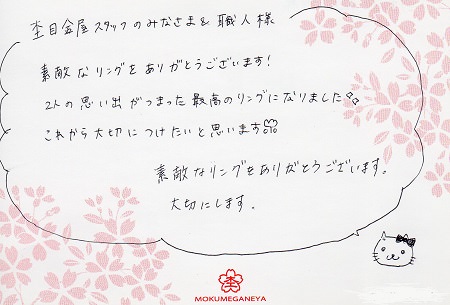 杢目金屋スタッフのみなさま& 職人様
素敵なリングをありがとうございます!
2人の思い出がつまった最高のリングになりました
これから大切につけたいと思います
素敵なリングをありがとうございます。
大切にします。
杢
MOKUMEGANEYA